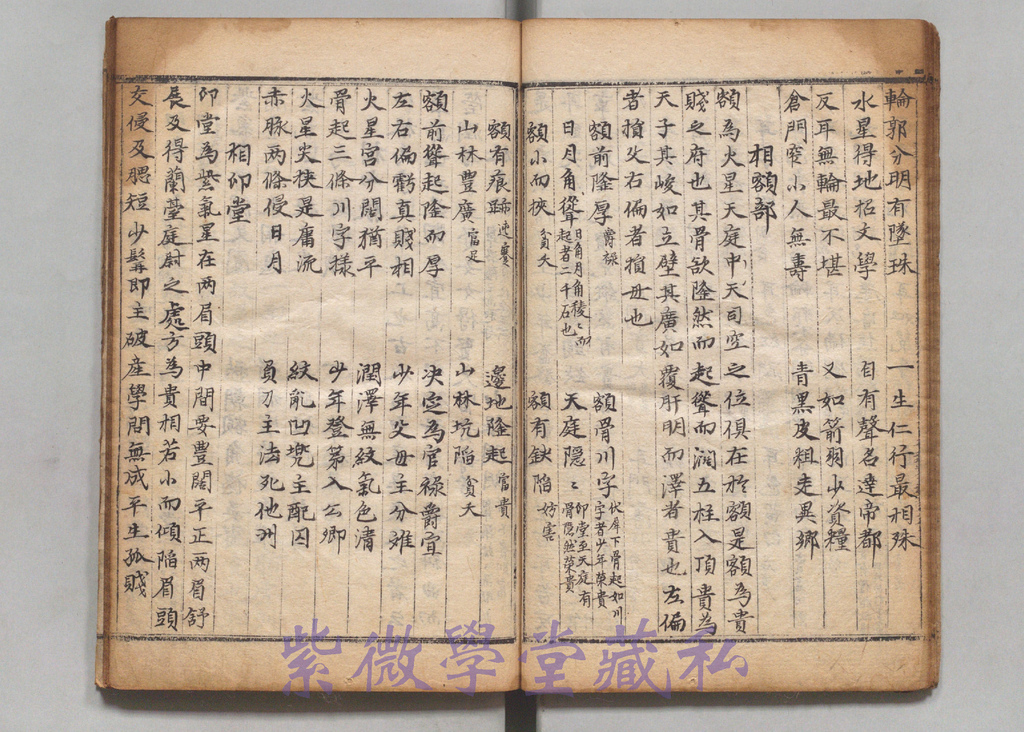 輪郭分明有墜珠　一生仁行最相殊
水星得地招文學　自有聲名達帝都
反耳無輪最不堪　又如箭羽少資糧
倉門窄小人無壽　青黑皮粗走異鄉
相額部
額為火星天庭中天司空之位俱在於額是額為貴
賤之府也其骨欲隆然而起聳而濶五柱入頂貴為
天子其峻如立壁其廣如覆肝明而澤者貴也左偏
者損父右偏者損母也
額前隆厚爵祿　額骨川字伏犀下骨起如川字者少年榮貴
日月角聳日角月角稜〻而起者二千石也　天庭隱〻印堂至天庭有骨隱然榮貴
額小而挾貧夭　額有缺陷妨害
額有痕跡迍蹇　邊地隆起富貴
山林豐廣富足　山林坑陷貧夭
額前聳起隆而厚　決定為官祿爵宜
左右偏虧真賤相　少年父母主分雉
火星宮分闊猶平　潤澤無紋氣色清
骨起三條川字樣　少年登第入公卿
火星尖狹是庸流　紋亂凹兠主配囚
赤脉兩條侵日月　負刃主法死他州
相印堂
印堂為紫氣星在兩眉頭中間要豐闊平正兩眉舒
長及得蘭臺庭尉之處方為貴相若小而傾陷眉頭
交侵及腮短少髯即主破產學問無成平生孤賤
紫微學堂藏私